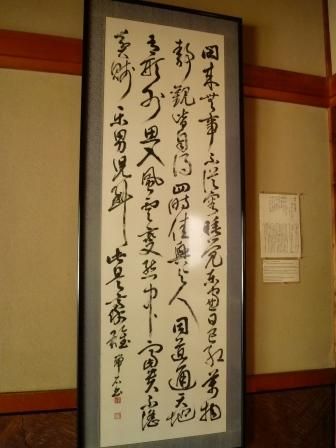 閑来無事不從容睡覺東窓日已紅萬物
静觀皆自得四時佳興与人同道通天地
有形外思入風雲變態中富貴不淫
貧賤樂男兒到此是豪雄